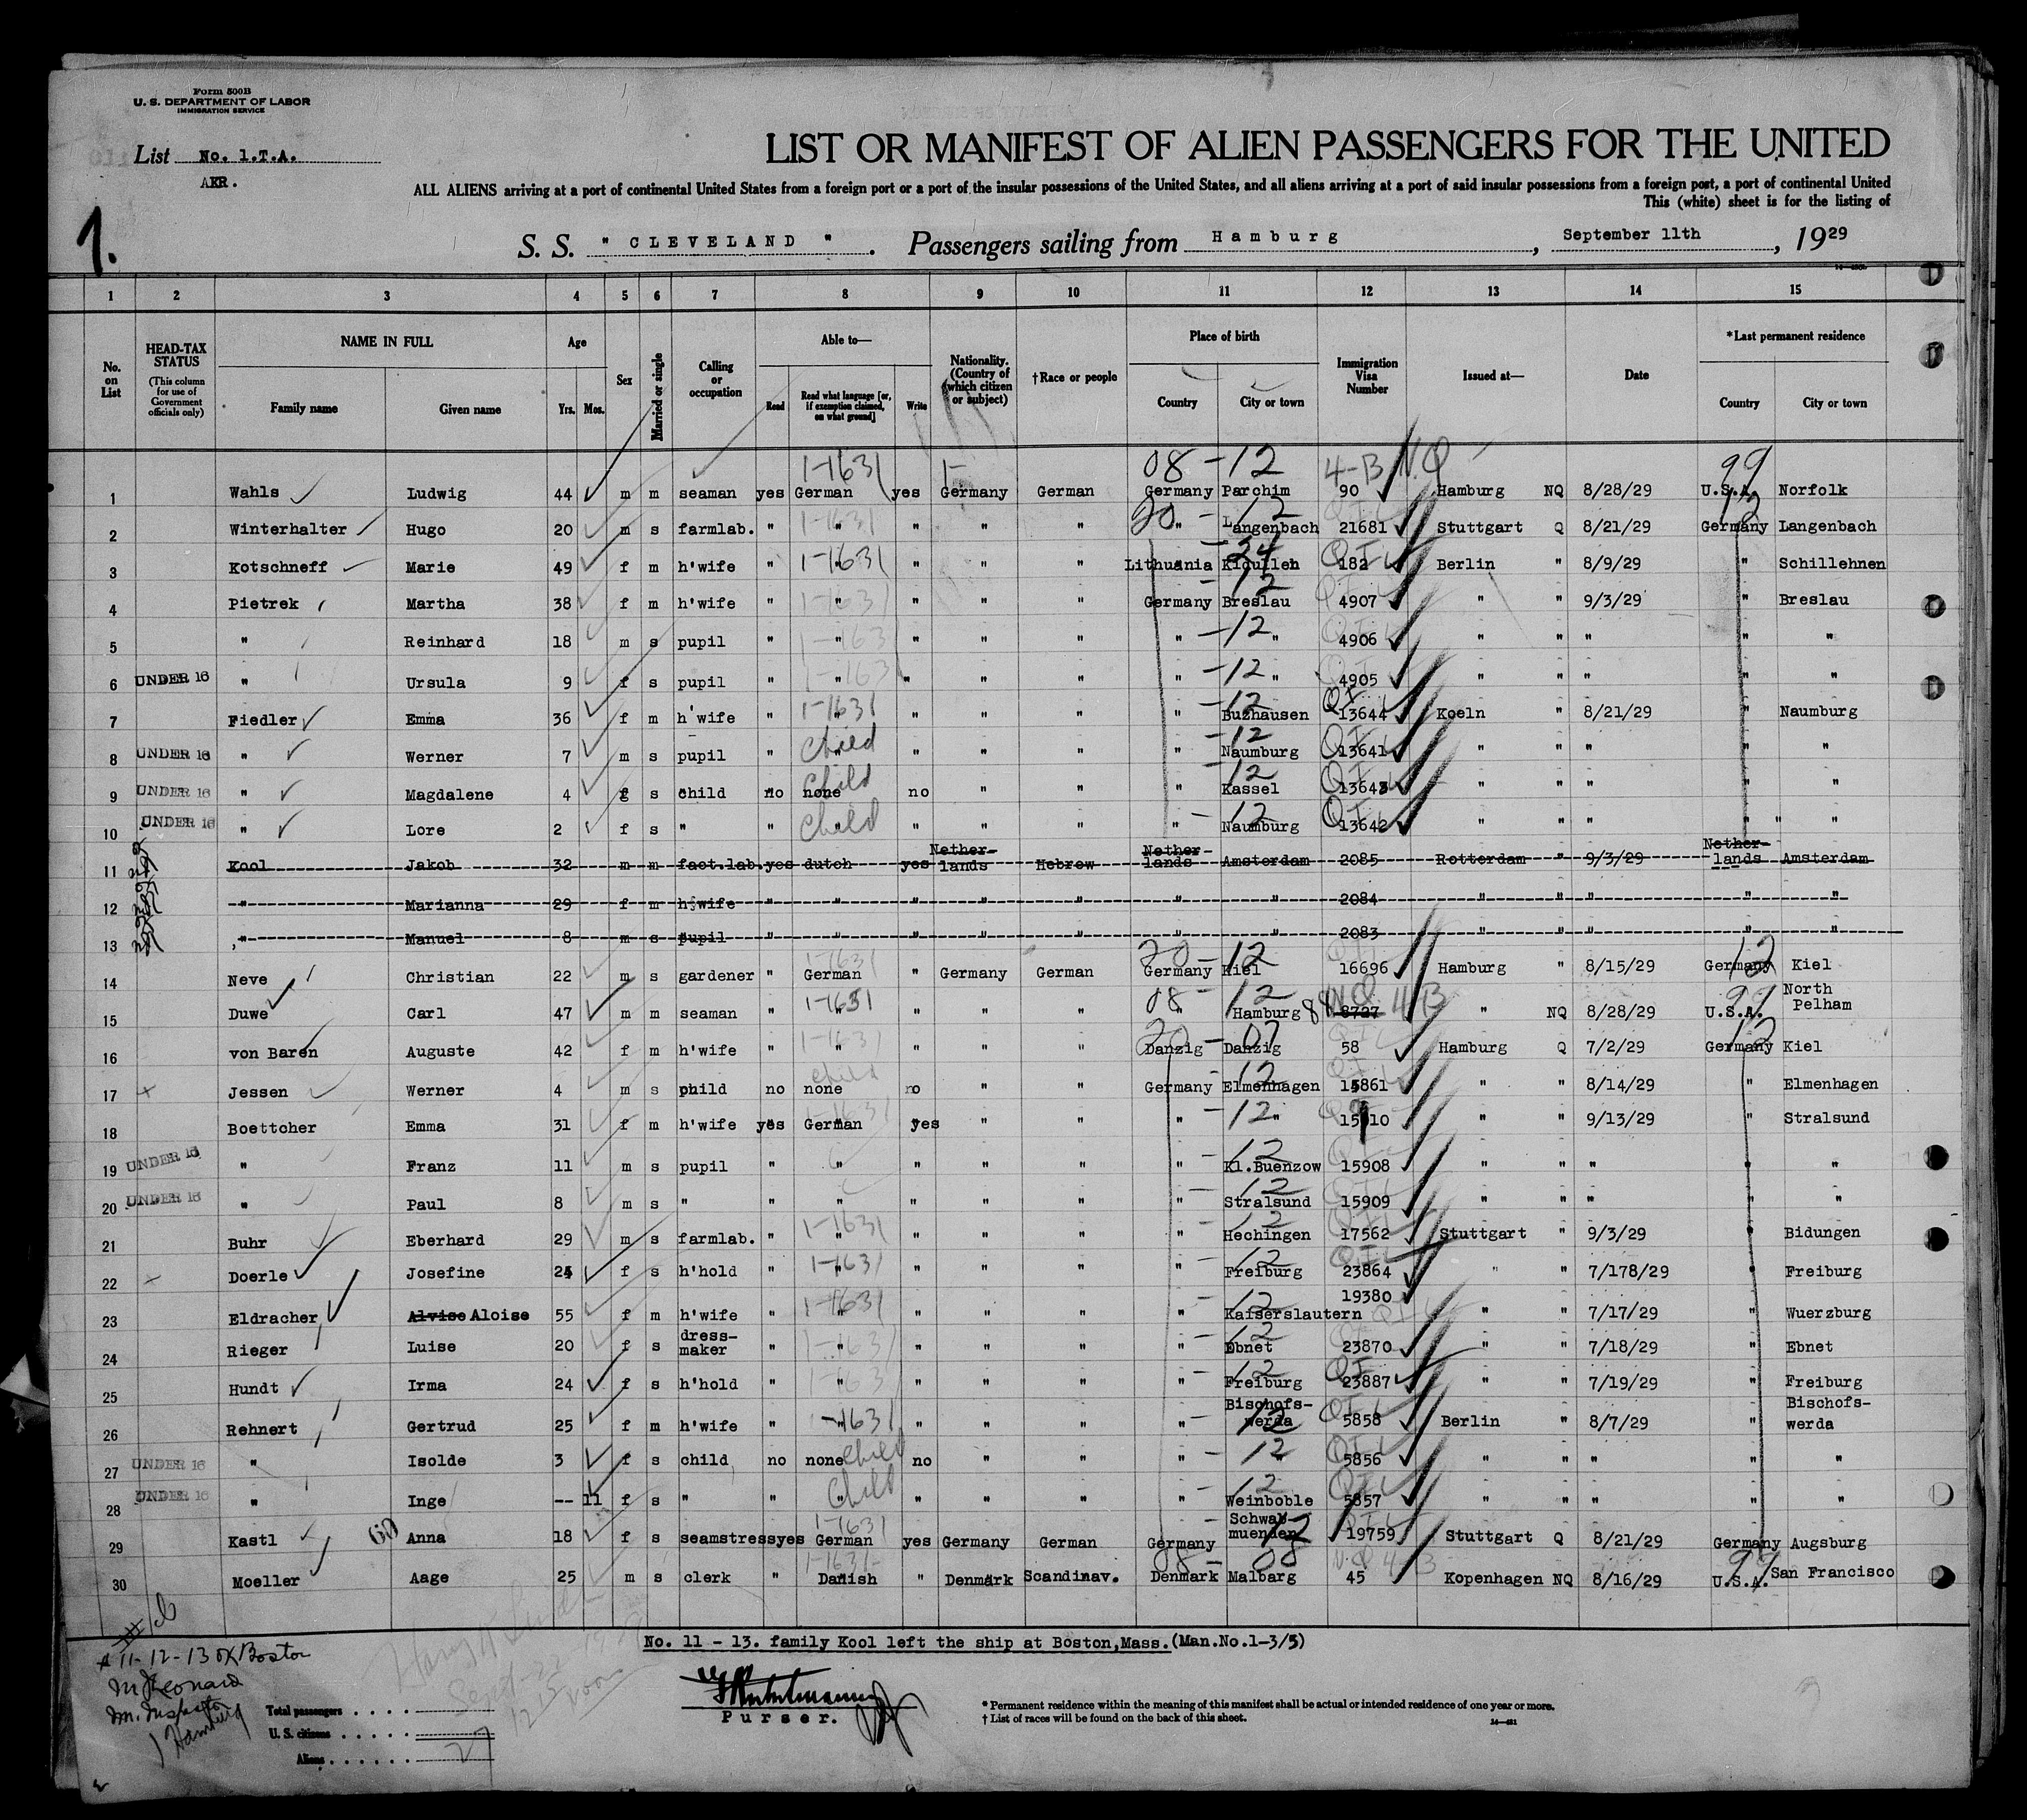 Form 500B
U. S. DEPARTMENT OF LABOR
IMMIGRATION SERVICE
List No. 1.T.A.
AKR.
1.
LIST OR MANIFEST OF ALIEN PASSENGERS FOR THE UNITED
ALL ALIENS arriving at a port of continental United States from a foreign port or a port of the insular possessions of the United States, and all aliens arriving at a port of said insular possessions from a foreign port, a port of continental United
This (white) sheet is for the listing of
S. S. " CLEVELAND " . Passengers sailing from Hamburg , September 11th , 1929
1 2 3 4 5 6 7 8 9 10 11 12 13 14 15
No. on List
HEAD-TAX STATUS (This column for use of Government officials only)
NAME IN FULL
Family name Given name
Age
Yrs. Mos.
Sex
Married or single
Calling or occupation
Able to—
Read Read what language [or, if exemption claimed, on what ground] Write
Nationality. (Country of which citizen or subject)
†Race or people
Place of birth
Country City or town
Immigration Visa Number
Issued at—
Date
*Last permanent residence
Country City or town
1-1631 1- 08 - 12 4-B N.Q 99
1 Wahls Ludwig 44 m m seaman yes German yes Germany German Germany Parchim 90 Hamburg NQ 8/28/29 U.S.A. Norfolk
2 Winterhalter Hugo 20 m s farmlab. " " " " " " Langenbach 21681 Stuttgart Q 8/21/29 Germany Langenbach
3 Kotschneff Marie 49 f m h'wife " " " " " Lithuania Kicullen 182 Berlin " 8/9/29 " Schillehnen
4 Pietrek Martha 38 f m h'wife " " " " " Germany Breslau 4907 " " 9/3/29 " Breslau
5 " Reinhard 18 m s pupil " " " " " " " 4906 " " " " "
6 UNDER 16 " Ursula 9 f s pupil " " " " " " " 4905 " " " " "
7 Fiedler Emma 36 f m h'wife " " " " " " Buzhausen 13644 Koeln " 8/21/29 " Naumburg
8 UNDER 16 " Werner 7 m s pupil " Child " " " " Naumburg 13641 " " " " "
9 UNDER 16 " Magdalene 4 f s child no none Child no " " " Kassel 13643 " " " " "
10 UNDER 16 " Lore 2 f s " " Child " " " " Naumburg 13642 " " " " "
11 Kool Jakob 32 m m fact.lab. yes dutch yes Nether-lands Hebrew Nether-lands Amsterdam 2085 Rotterdam " 9/3/29 Nether-lands Amsterdam
12 " Marianna 29 f m h'wife " " " " " " " 2084 " " " " "
13 " Manuel 8 m s pupil " " " " " " " 2083 " " " " "
14 Neve Christian 22 m s gardener " German " Germany German Germany Kiel 16696 Hamburg " 8/15/29 Germany Kiel
15 Duwe Carl 47 m m seaman " " " " " " Hamburg 8727 " NQ 8/28/29 U.S.A. North Pelham
16 von Baren Auguste 42 f m h'wife " " " " " Danzig Danzig 58 Hamburg Q 7/2/29 Germany Kiel
17 Jessen Werner 4 m s child no none no " " Germany Elmenhagen 15861 " " 8/14/29 " Elmenhagen
18 Boettcher Emma 31 f m h'wife yes German yes " " " " 15910 " " 9/13/29 " Stralsund
19 UNDER 16 " Franz 11 m s pupil " " " " " " Kl.Buenzow 15908 " " " " "
20 UNDER 16 " Paul 8 m s " " " " " " " Stralsund 15909 " " " " "
21 Buhr Eberhard 29 m s farmlab. " " " " " " Hechingen 17562 Stuttgart " 9/3/29 " Bidungen
22 Doerle Josefine 24 f s h'hold " " " " " " Freiburg 23864 " " 7/178/29 " Freiburg
23 Eldracher Alvise Aloise 55 f m h'wife " " " " " " Kaiserslautern 19380 " " 7/17/29 " Wuerzburg
24 Rieger Luise 20 f s dress-maker " " " " " " Ebnet 23870 " " 7/18/29 " Ebnet
25 Hundt Irma 24 f s h'hold " " " " " " Freiburg 23887 " " 7/19/29 " Freiburg
26 Rehnert Gertrud 25 f m h'wife " " " " " " Bischofs-werda 5858 Berlin " 8/7/29 " Bischofs-werda
27 UNDER 16 " Isolde 3 f s child no none Child no " " " " 5856 " " " " "
28 UNDER 16 " Inge -- 11 f s " " Child " " " " Weinboble 5857 " " " " "
29 Kastl Anna 18 f s seamstress yes German yes Germany German Germany Schwab-muenden 19759 Stuttgart Q 8/21/29 Germany Augsburg
30 Moeller Aage 25 m s clerk " Danish " Denmark Scandinav. Denmark Malbarg 45 Kopenhagen NQ 8/16/29 U.S.A. San Francisco
No. 11 - 13. family Kool left the ship at Boston,Mass.(Man.No.1-3/5)
11-12-13 OK Boston
M Leonard
Hamburg
Purser.
Total passengers
U. S. citizens
Aliens 27
* Permanent residence within the meaning of this manifest shall be actual or intended residence of one year or more.
† List of races will be found on the back of this sheet.